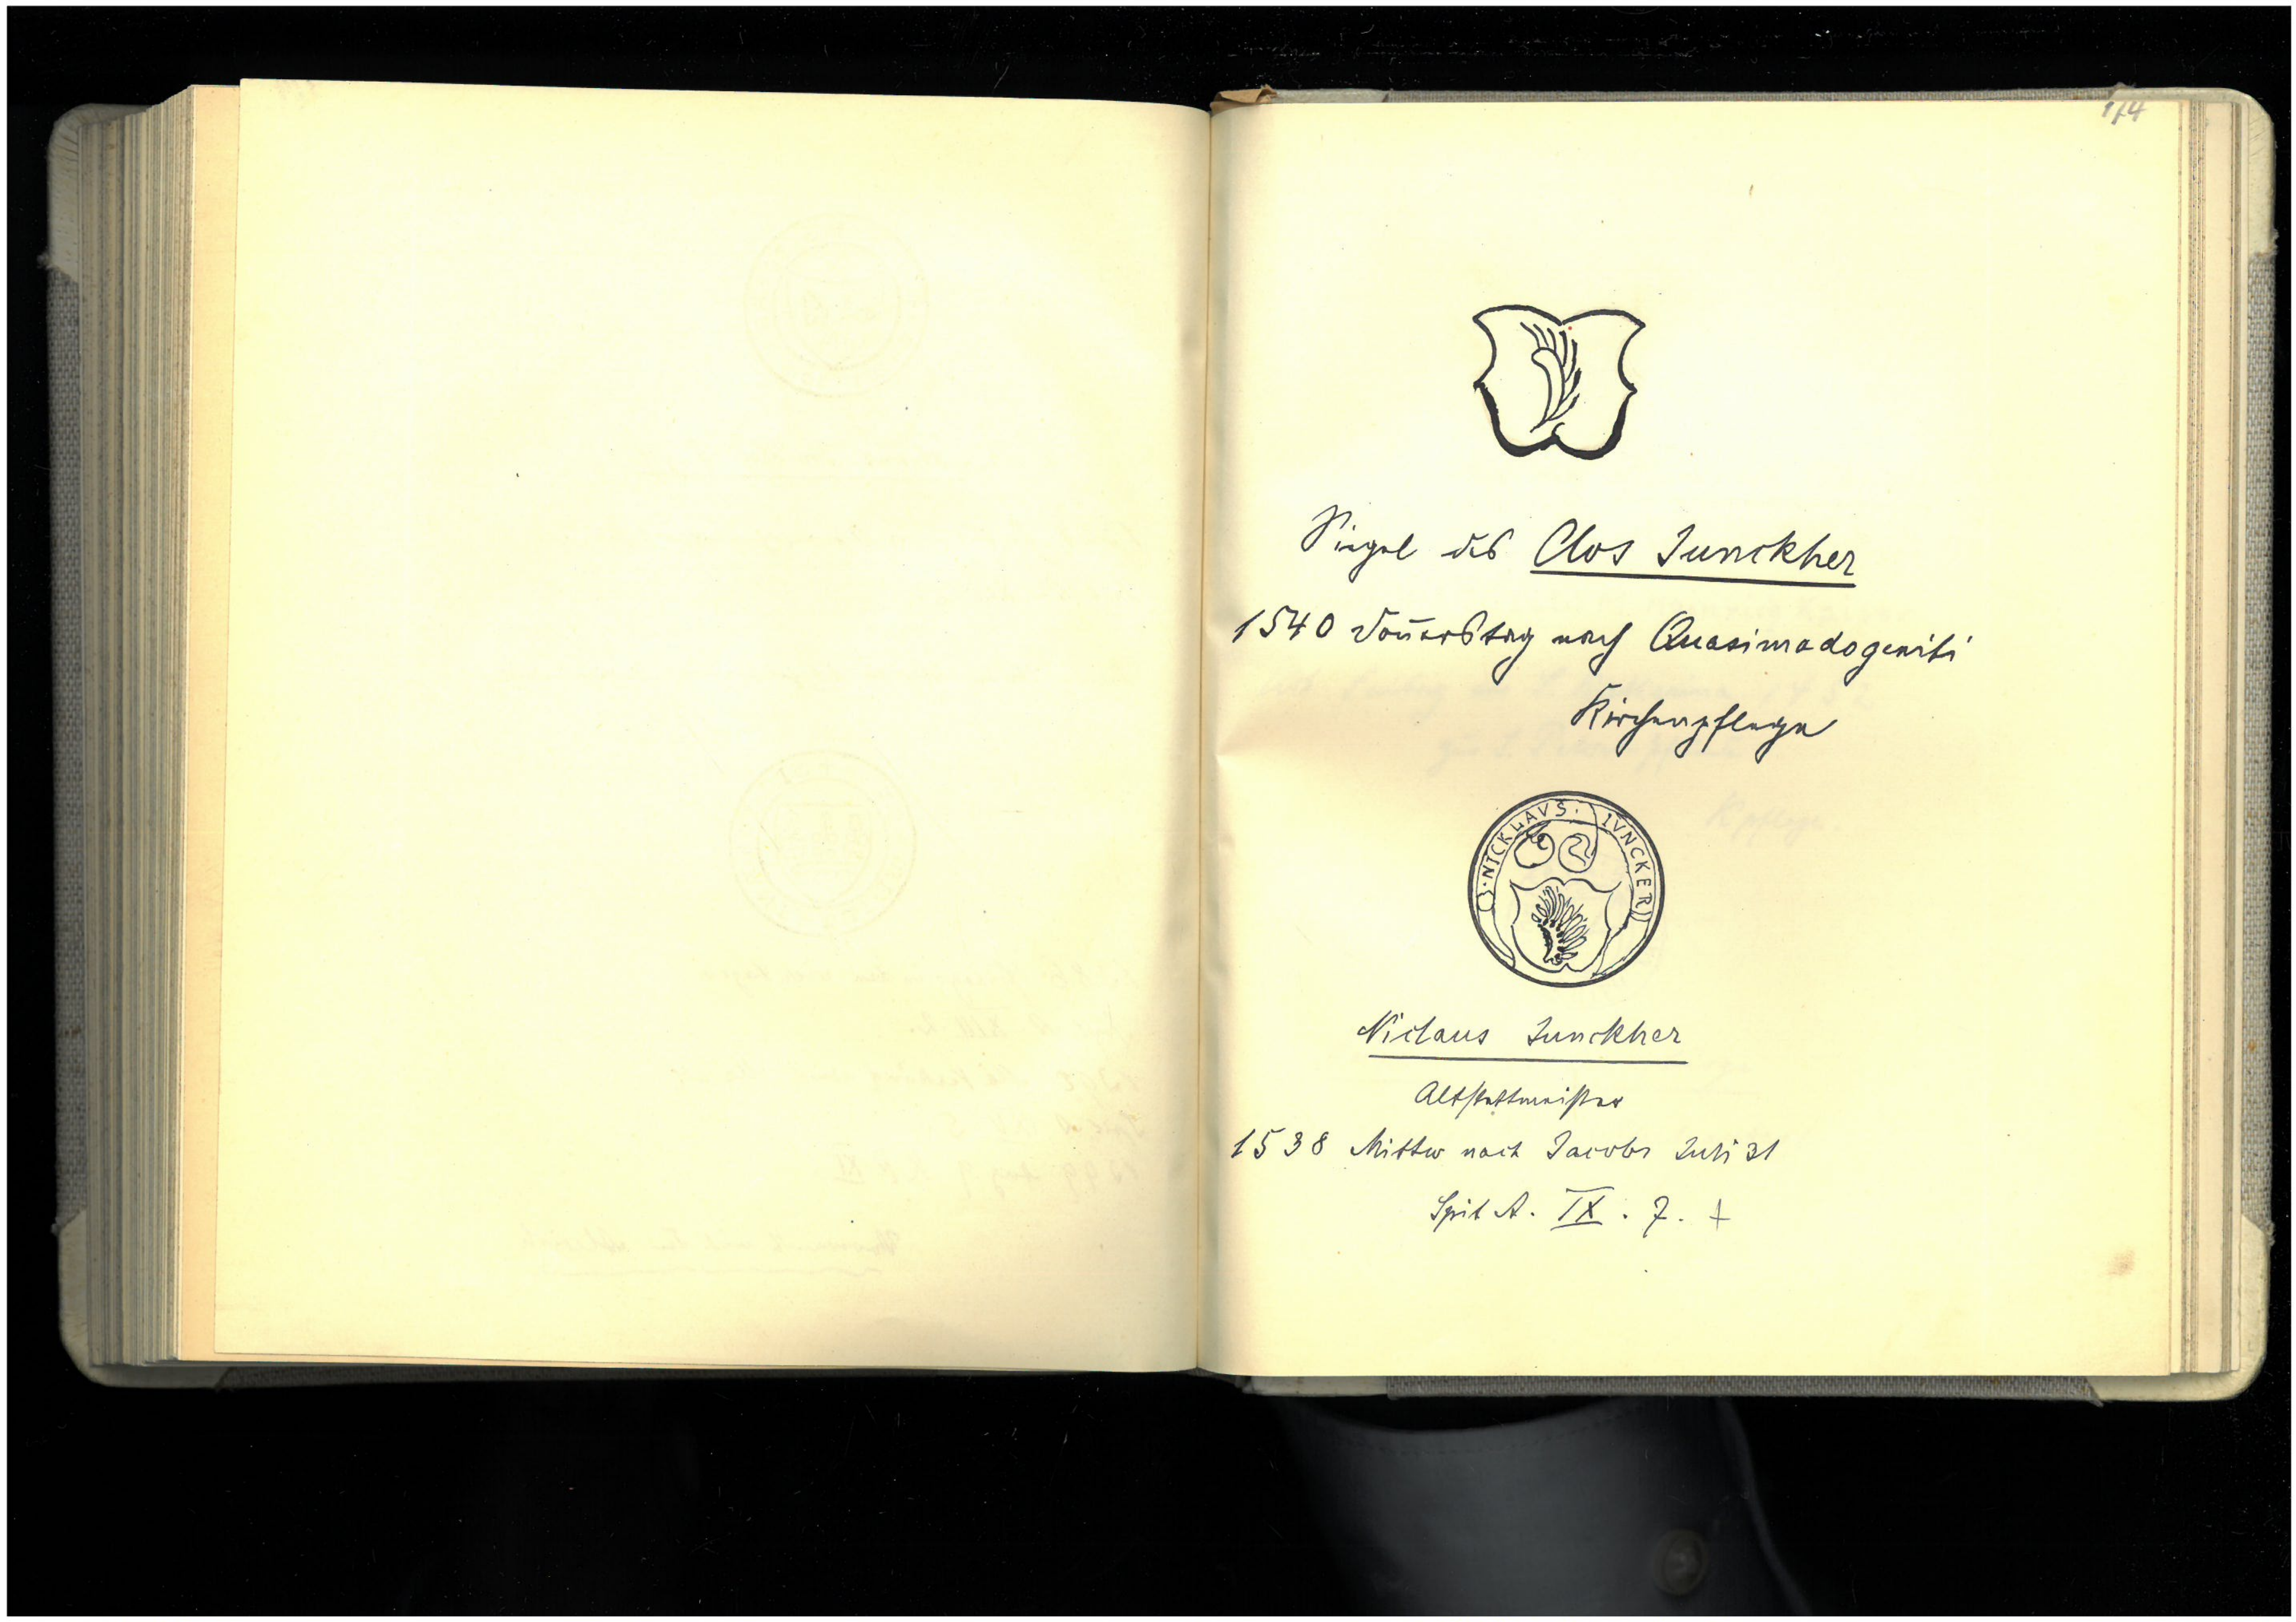 174
Siegel des Clos Junckher
1540 Don̄erstag nach Quasimodogeniti
Kirchenpflege
NICKLAVS · IVNCKER
Niclaus Junckher
Altstattmeister
1538 Mittw nach Jacobi Juli 31
Spit A. IX. 7. +